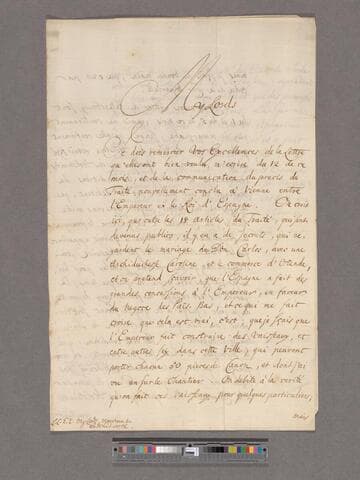 My Lords
Je dois remercier Vos Excellences de la Lettre
qu'elles ont bien voulu m'écrire du 12 de ce
mois, et de la communication du précis du
Traité, nouvellement conclu à Vienne entre
l'Empereur et le Roi d'Espagne. On croit
ici, que outre les 18 Articles du Traité, qui sont
devenus publics, il y en a de secrets, qui re-
gardent le mariage du Don Carlos, avec une
Archiduchesse Caroline, et le commerce d'Ostende,
et on prétend sçavoir, que l'Espagne a fait de
grandes concessions à l'Empereur, en faveur
du negoce des Païs-Bas, et ce qui me fait
croire que cela est vrai, c'est, que je sçais que
l'Empereur fait construire des Vaisseaux, et
entre autres six dans cette Ville, qui peuvent
porter chacun 50 pièces de Canon, et dont j'ai
vu un sur le Chantier. On debite à la verité
qu'on fait ces Vaisseaux pour quelques particuliers,
mais